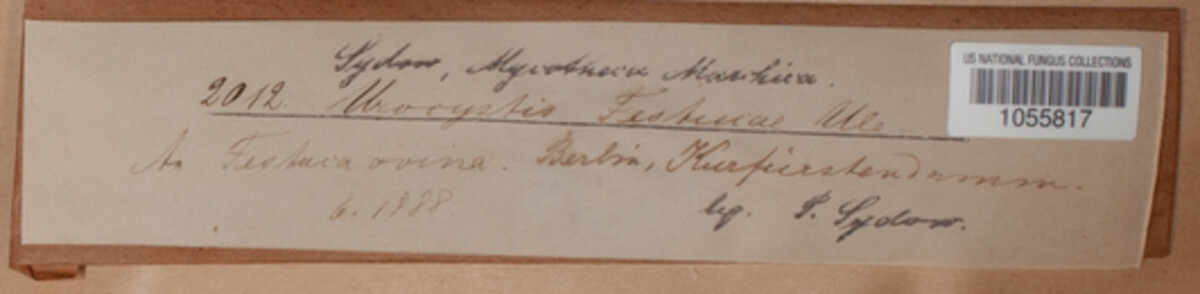 Sydow, Mycotheca Marchica.
US NATIONAL FUNGUS COLLECTIONS
1055817
2012. Urocystis Festucae Ule.
An Festuca ovina. Berlin, Kurfürstendamm.
6. 1888.
leg. P. Sydow.